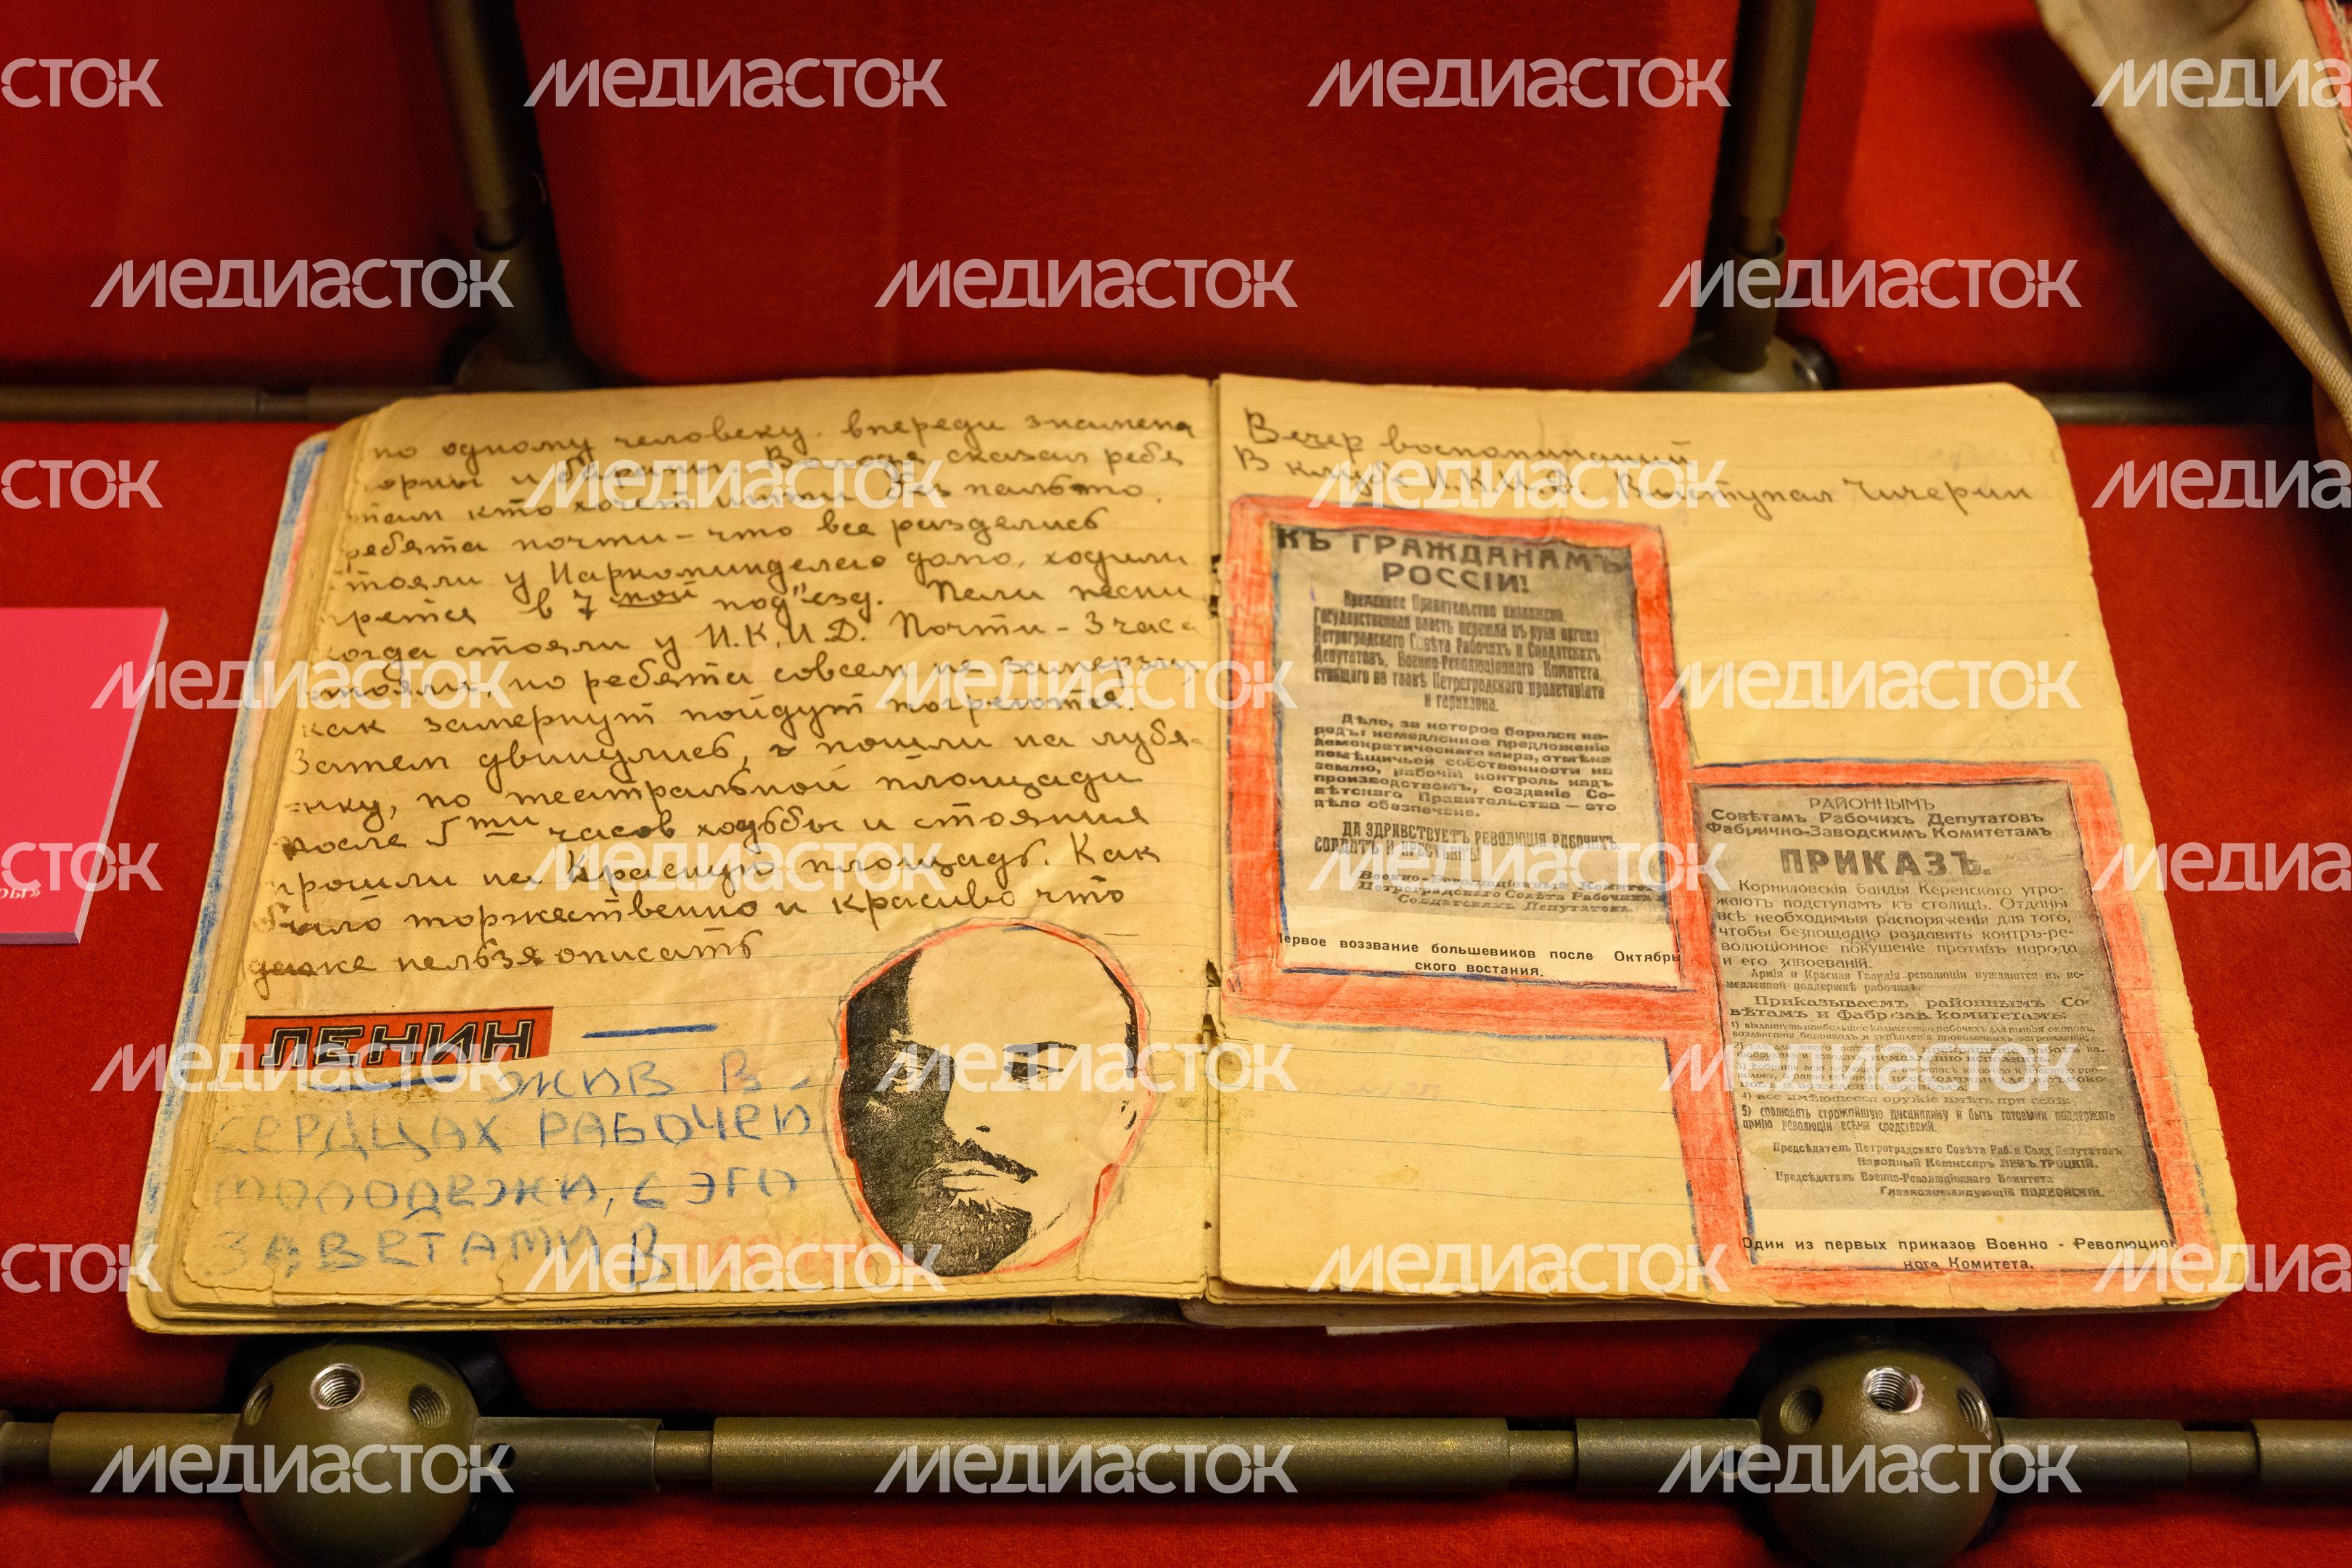 по одному человеку. впереди знамена
горны и барабаны. Володя сказал ребя
там кто хочет итти без пальто.
ребята почти-что все разделись
стояли у Наркоминделего дома, ходили
греться в 7 мой под"езд. Пели песни
когда стояли у Н.К.И.Д. Почти-3 часа
стояли, но ребята совсем не замерзли
как замернут пойдут погреются.
Затем двинулись, и пошли на лубя-
-нку, по театральной площади
после 5ти часов ходьбы и стояния
прошли на Красную площадь. Как
было торжественно и красиво что
даже нельзя описать
ЛЕНИН
ЖИВ В
СЕРДЦАХ РАБОЧЕЙ
МОЛОДЕЖИ, С ЭГО
ЗАВЕТАМИ В
Вечер воспоминаний
В клубе Н.К.И.Д. Выступал Чичерин
КЪ ГРАЖДАНАМЪ
РОССІИ!
Временное Правительство низложено.
Государственная власть перешла въ руки органа
Петроградскаго Совѣта Рабочихъ и Солдатскихъ
Депутатовъ, Военно-Революціоннаго Комитета,
стоящаго во главѣ Петроградскаго пролетаріата
и гарнизона.
Дѣло, за которое боролся на-
родъ: немедленное предложеніе
демократическаго мира, отмѣна
помѣщичьей собственности на
землю, рабочій контроль надъ
производствомъ, созданіе Со-
вѣтскаго Правительства — это
дѣло обезпечено.
ДА ЗДРАВСТВУЕТЪ РЕВОЛЮЦІЯ РАБОЧИХЪ,
СОЛДАТЪ И КРЕСТЬЯНЪ!
Военно-Революціонный Комитетъ
Петроградскаго Совѣта Рабочихъ и
Солдатскихъ Депутатовъ.
Первое воззвание большевиков после Октябрь
ского востания.
РАЙОННЫМЪ
Совѣтамъ Рабочихъ Депутатовъ
Фабрично-Заводскимъ Комитетамъ
ПРИКАЗЪ.
Корниловскія банды Керенскаго угро-
жаютъ подступамъ къ столицѣ. Отданы
всѣ необходимыя распоряженія для того,
чтобы безпощадно раздавить контръ-ре-
волюціонное покушеніе противъ народа
и его завоеваній.
Армія и Красная Гвардія революціи нуждаются въ не-
медленной поддержкѣ рабочихъ.
Приказываемъ районнымъ Со-
вѣтамъ и фабр.-зав. Комитетамъ:
1) выдвинуть наибольшее количество рабочихъ для рытья окоповъ,
воздвиганія баррикадъ и укрѣпленія проволочныхъ загражденій;
4) все имѣющееся оружіе имѣть при себѣ;
5) соблюдать строжайшую дисциплину и быть готовыми поддержать
армію революціи всѣми средствами.
Предсѣдатель Петроградскаго Совѣта Раб. и Солд. Депутатовъ
Народный Комиссаръ ЛЕВЪ ТРОЦКІЙ.
Предсѣдатель Военно-Революціоннаго Комитета
Главнокомандующій ПОДВОЙСКІЙ.
Один из первых приказов Военно - Революцион
ного Комитета.
МЕДИАСТОК